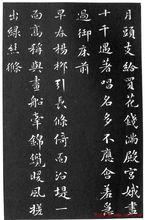 月頭支給買花錢滿殿宮娥盡
十千遇著唱名多不應含羞急
過御床前
早春楊柳引長條倚岸沿堤一
面高稱與畫船牽錦纜暖風搓
出綵絲條